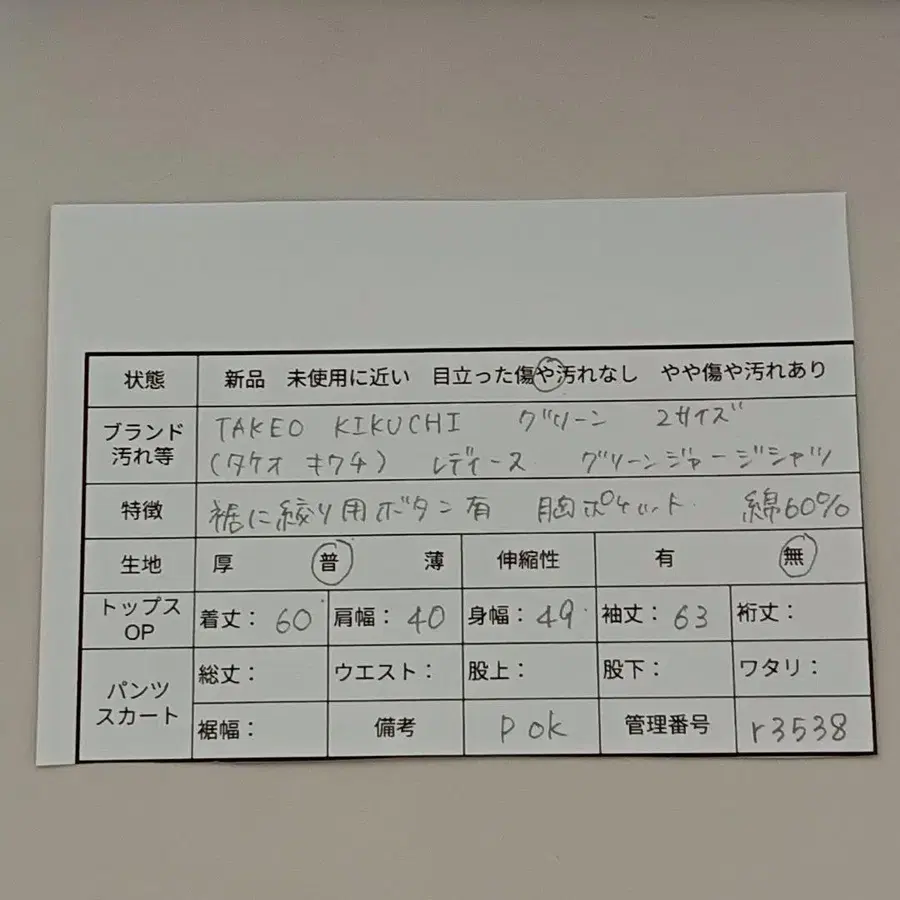 状態 新品 未使用に近い 目立った傷や汚れなし やや傷や汚れあり
ブランド 汚れ等 TAKEO KIKUCHI グリーン 2サイズ
(タケオ キクチ) レディース グリーンジャージシャツ
特徴 裾に絞り用ボタン有 胸ポケット 綿60%
生地 厚 普 薄 伸縮性 有 無
トップス OP 着丈: 60 肩幅: 40 身幅: 49 袖丈: 63 裄丈:
パンツ スカート 総丈: ウエスト: 股上: 股下: ワタリ:
裾幅: 備考 P ok 管理番号 r3538